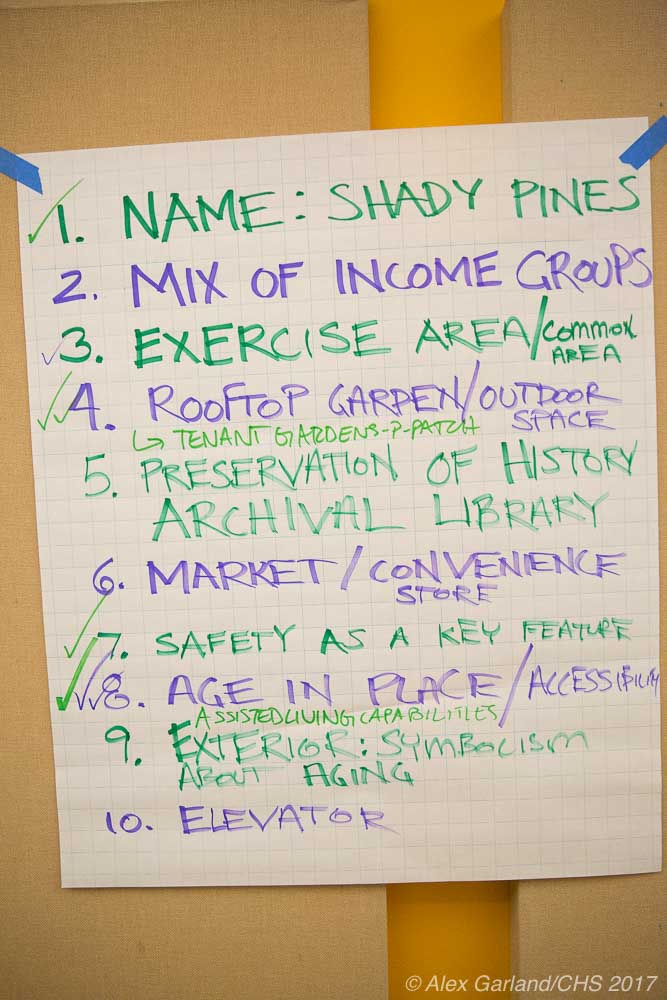 1. NAME: SHADY PINES
2. MIX OF INCOME GROUPS
3. EXERCISE AREA/COMMON
AREA
4. ROOFTOP GARDEN/OUTDOOR
SPACE
↳ TENANT GARDENS-P-PATCH
5. PRESERVATION OF HISTORY
ARCHIVAL LIBRARY
6. MARKET/CONVENIENCE
STORE
7. SAFETY AS A KEY FEATURE
8. AGE IN PLACE/ACCESSIBILITY
ASSISTED LIVING CAPABILITIES
9. EXTERIOR: SYMBOLISM
ABOUT AGING
10. ELEVATOR
© Alex Garland/CHS 2017